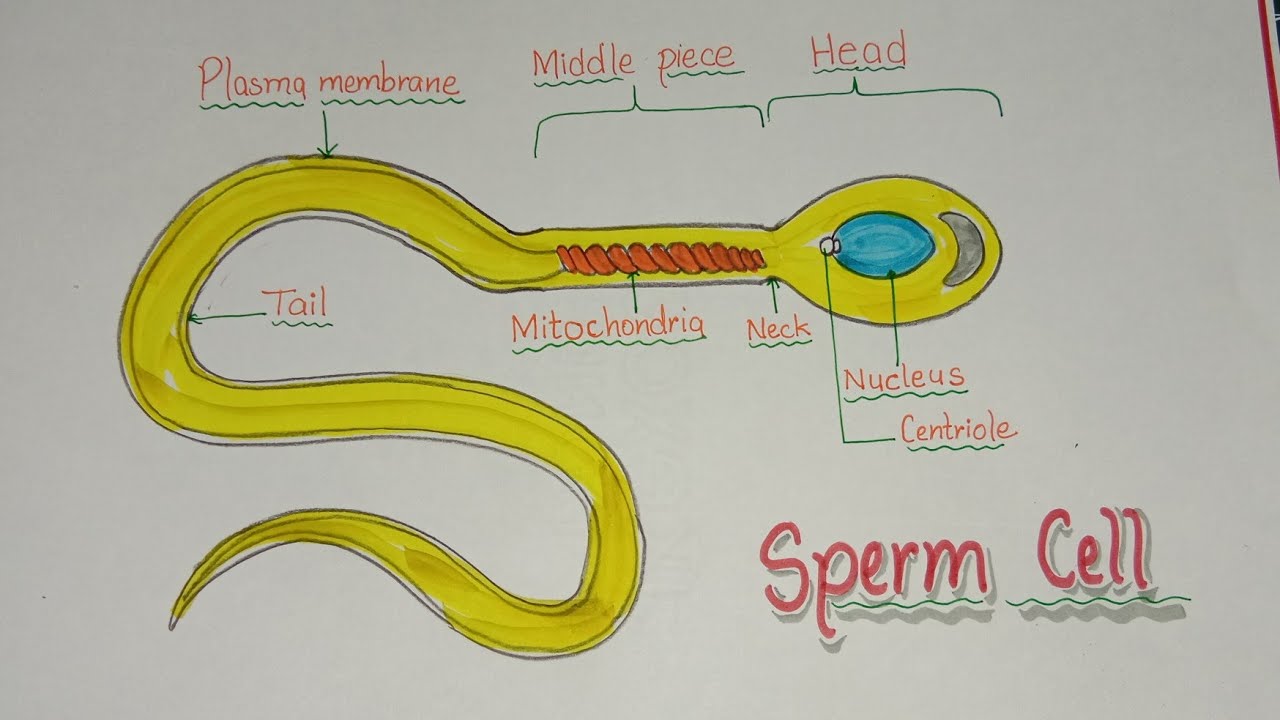 Plasma membrane
Middle piece
Head
Tail
Mitochondria
Neck
Nucleus
Centriole
Sperm Cell